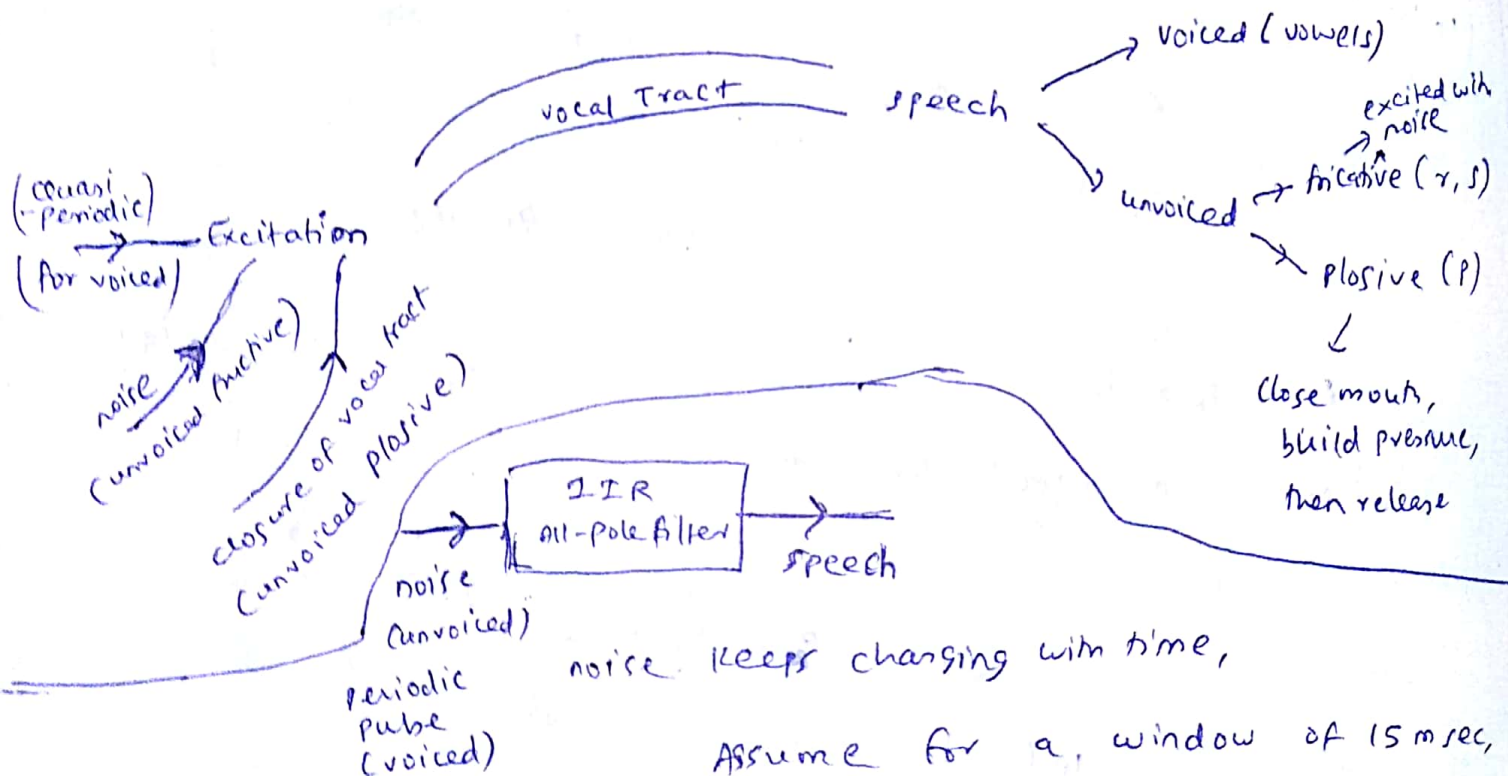 voiced (vowels)
vocal Tract
speech
excited with
noise
unvoiced
fricative (r, s)
plosive (P)
close mouth,
build pressure,
then release
(quasi
-periodic)
(for voiced)
Excitation
noise
(unvoiced fricative)
closure of vocal tract
(unvoiced plosive)
IIR
All-pole filter
speech
noise
(unvoiced)
periodic
pulse
(voiced)
noise keeps changing with time,
Assume for a window of 15 msec,